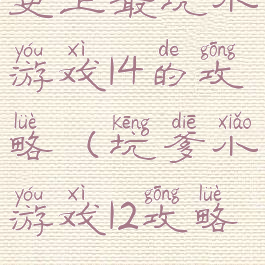 史上最坑小
yóu xì de gōng
游戏14的攻
lüè kēng diē xiǎo
略(坑爹小
yóu xì gōng lüè
游戏12攻略